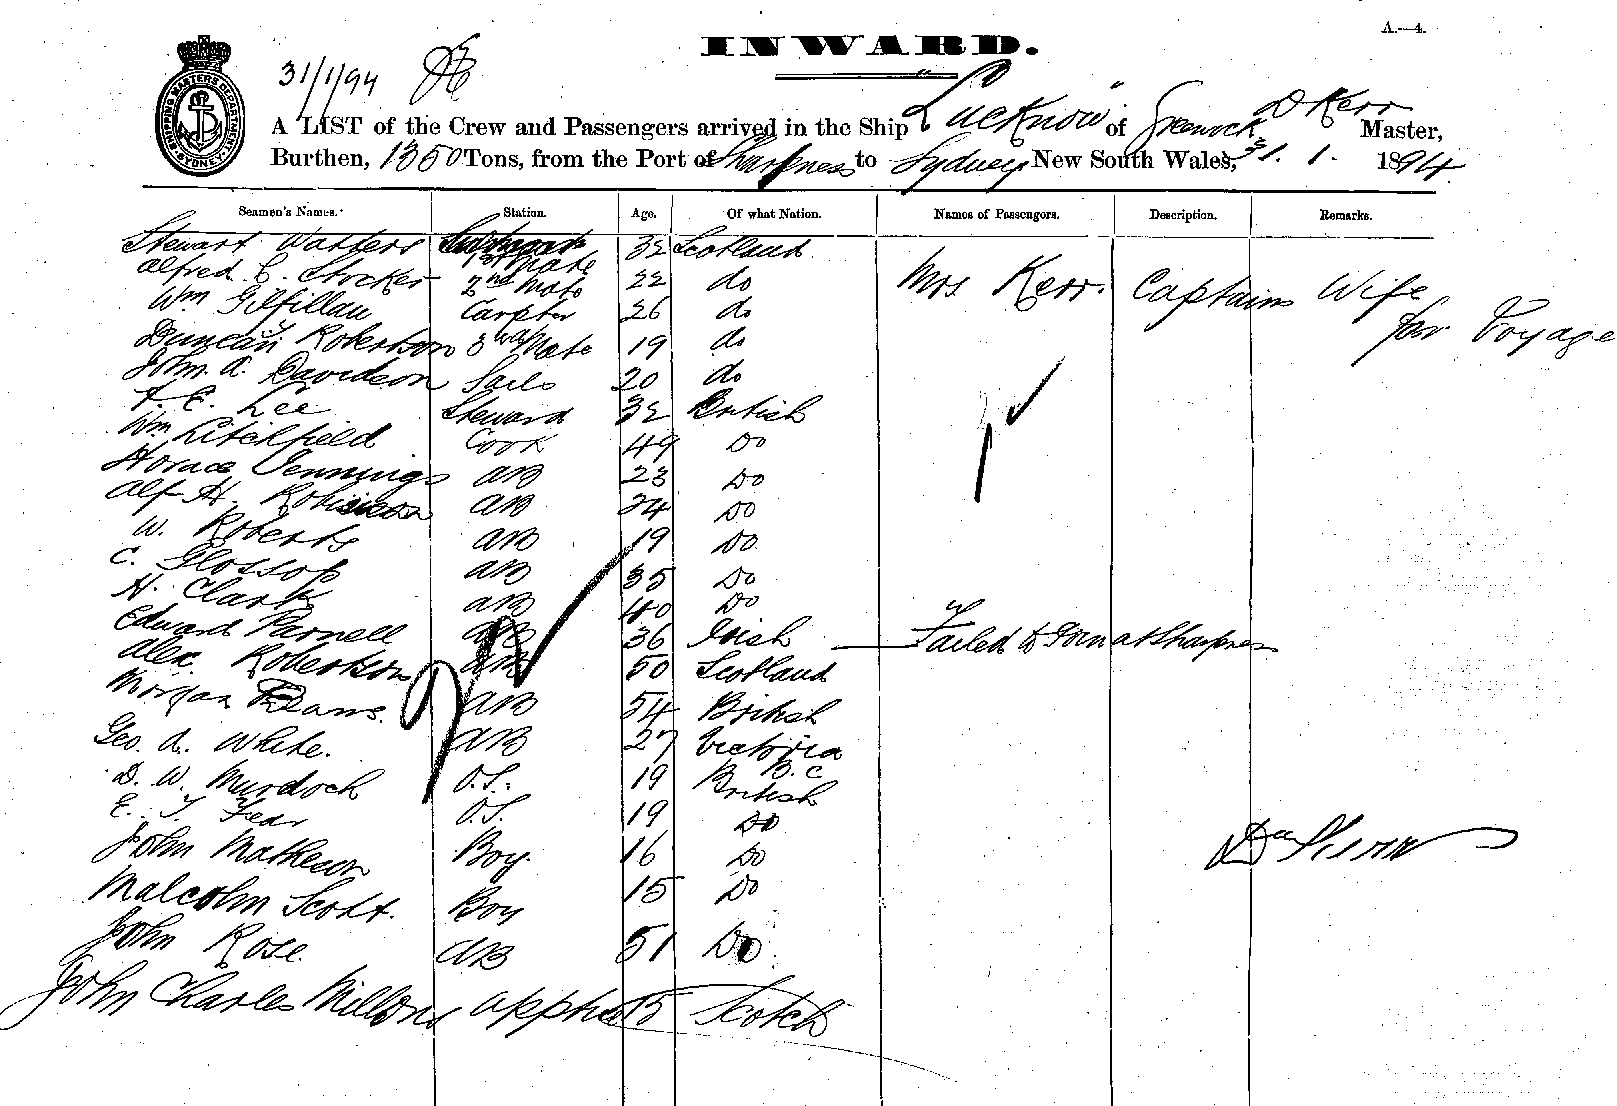 A.—4.
INWARD.
31/1/94
A LIST of the Crew and Passengers arrived in the Ship "Lucknow" of Greenock, D Kerr Master,
Burthen, 1350 Tons, from the Port of Sharpness to Sydney New South Wales, 31. 1. 1894.
Seamen's Names. Station. Age. Of what Nation. Names of Passengers. Description. Remarks.
Stewart Watters 1st Mate 32 Scotland
Alfred C. Stocker 2nd Mate 22 do Mrs Kerr. Captains Wife
Wm Gilfillan Carpter 26 do for Voyage
Duncan Robertson 3rd Mate 19 do
John. A. Davidson Sails 20 do
F. E. Lee Steward 32 British
Wm Litchfield Cook 49 Do
Horace Jennings AB 23 Do
Alf H. Robinson AB 24 Do
W. Roberts AB 19 Do
C. Glossop AB 35 Do
H. Clark AB 40 Do
Edward Parnell AB 36 Irish Failed to Join at Sharpness
Alex. Robertson AB 50 Scotland
Morgan Evans. AB 54 British
Geo. A. White. AB 27 Victoria B.C
D. W. Murdoch O.S. 19 British
E. T. Fear O.S. 19 Do
John Matheson Boy 16 Do
Malcolm Scott. Boy 15 Do
John Rose. AB 51 Do
John Charles Scotch